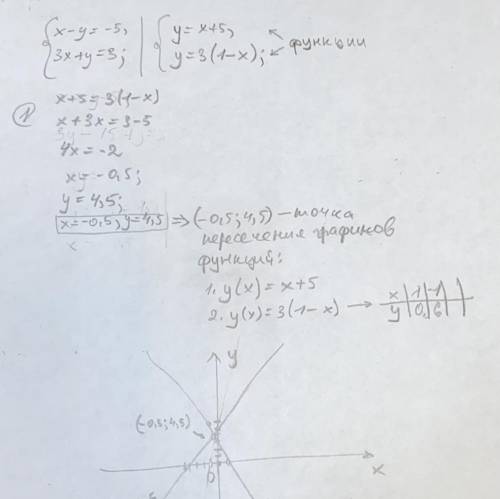 {x-y=-5, | {y=x+5,
{3x+y=3; | {y=3(1-x); функции
①
x+5=3(1-x)
x+3x=3-5
4x=-2
x=-0,5;
y=4,5;
x=-0,5; y=4,5 => (-0,5; 4,5) - точка
пересечения графиков
функций:
1. y(x)=x+5
2. y(x)=3(1-x) → x | 1 | -1 |
y | 0 | 6 |
y
(-0,5; 4,5)
0
x